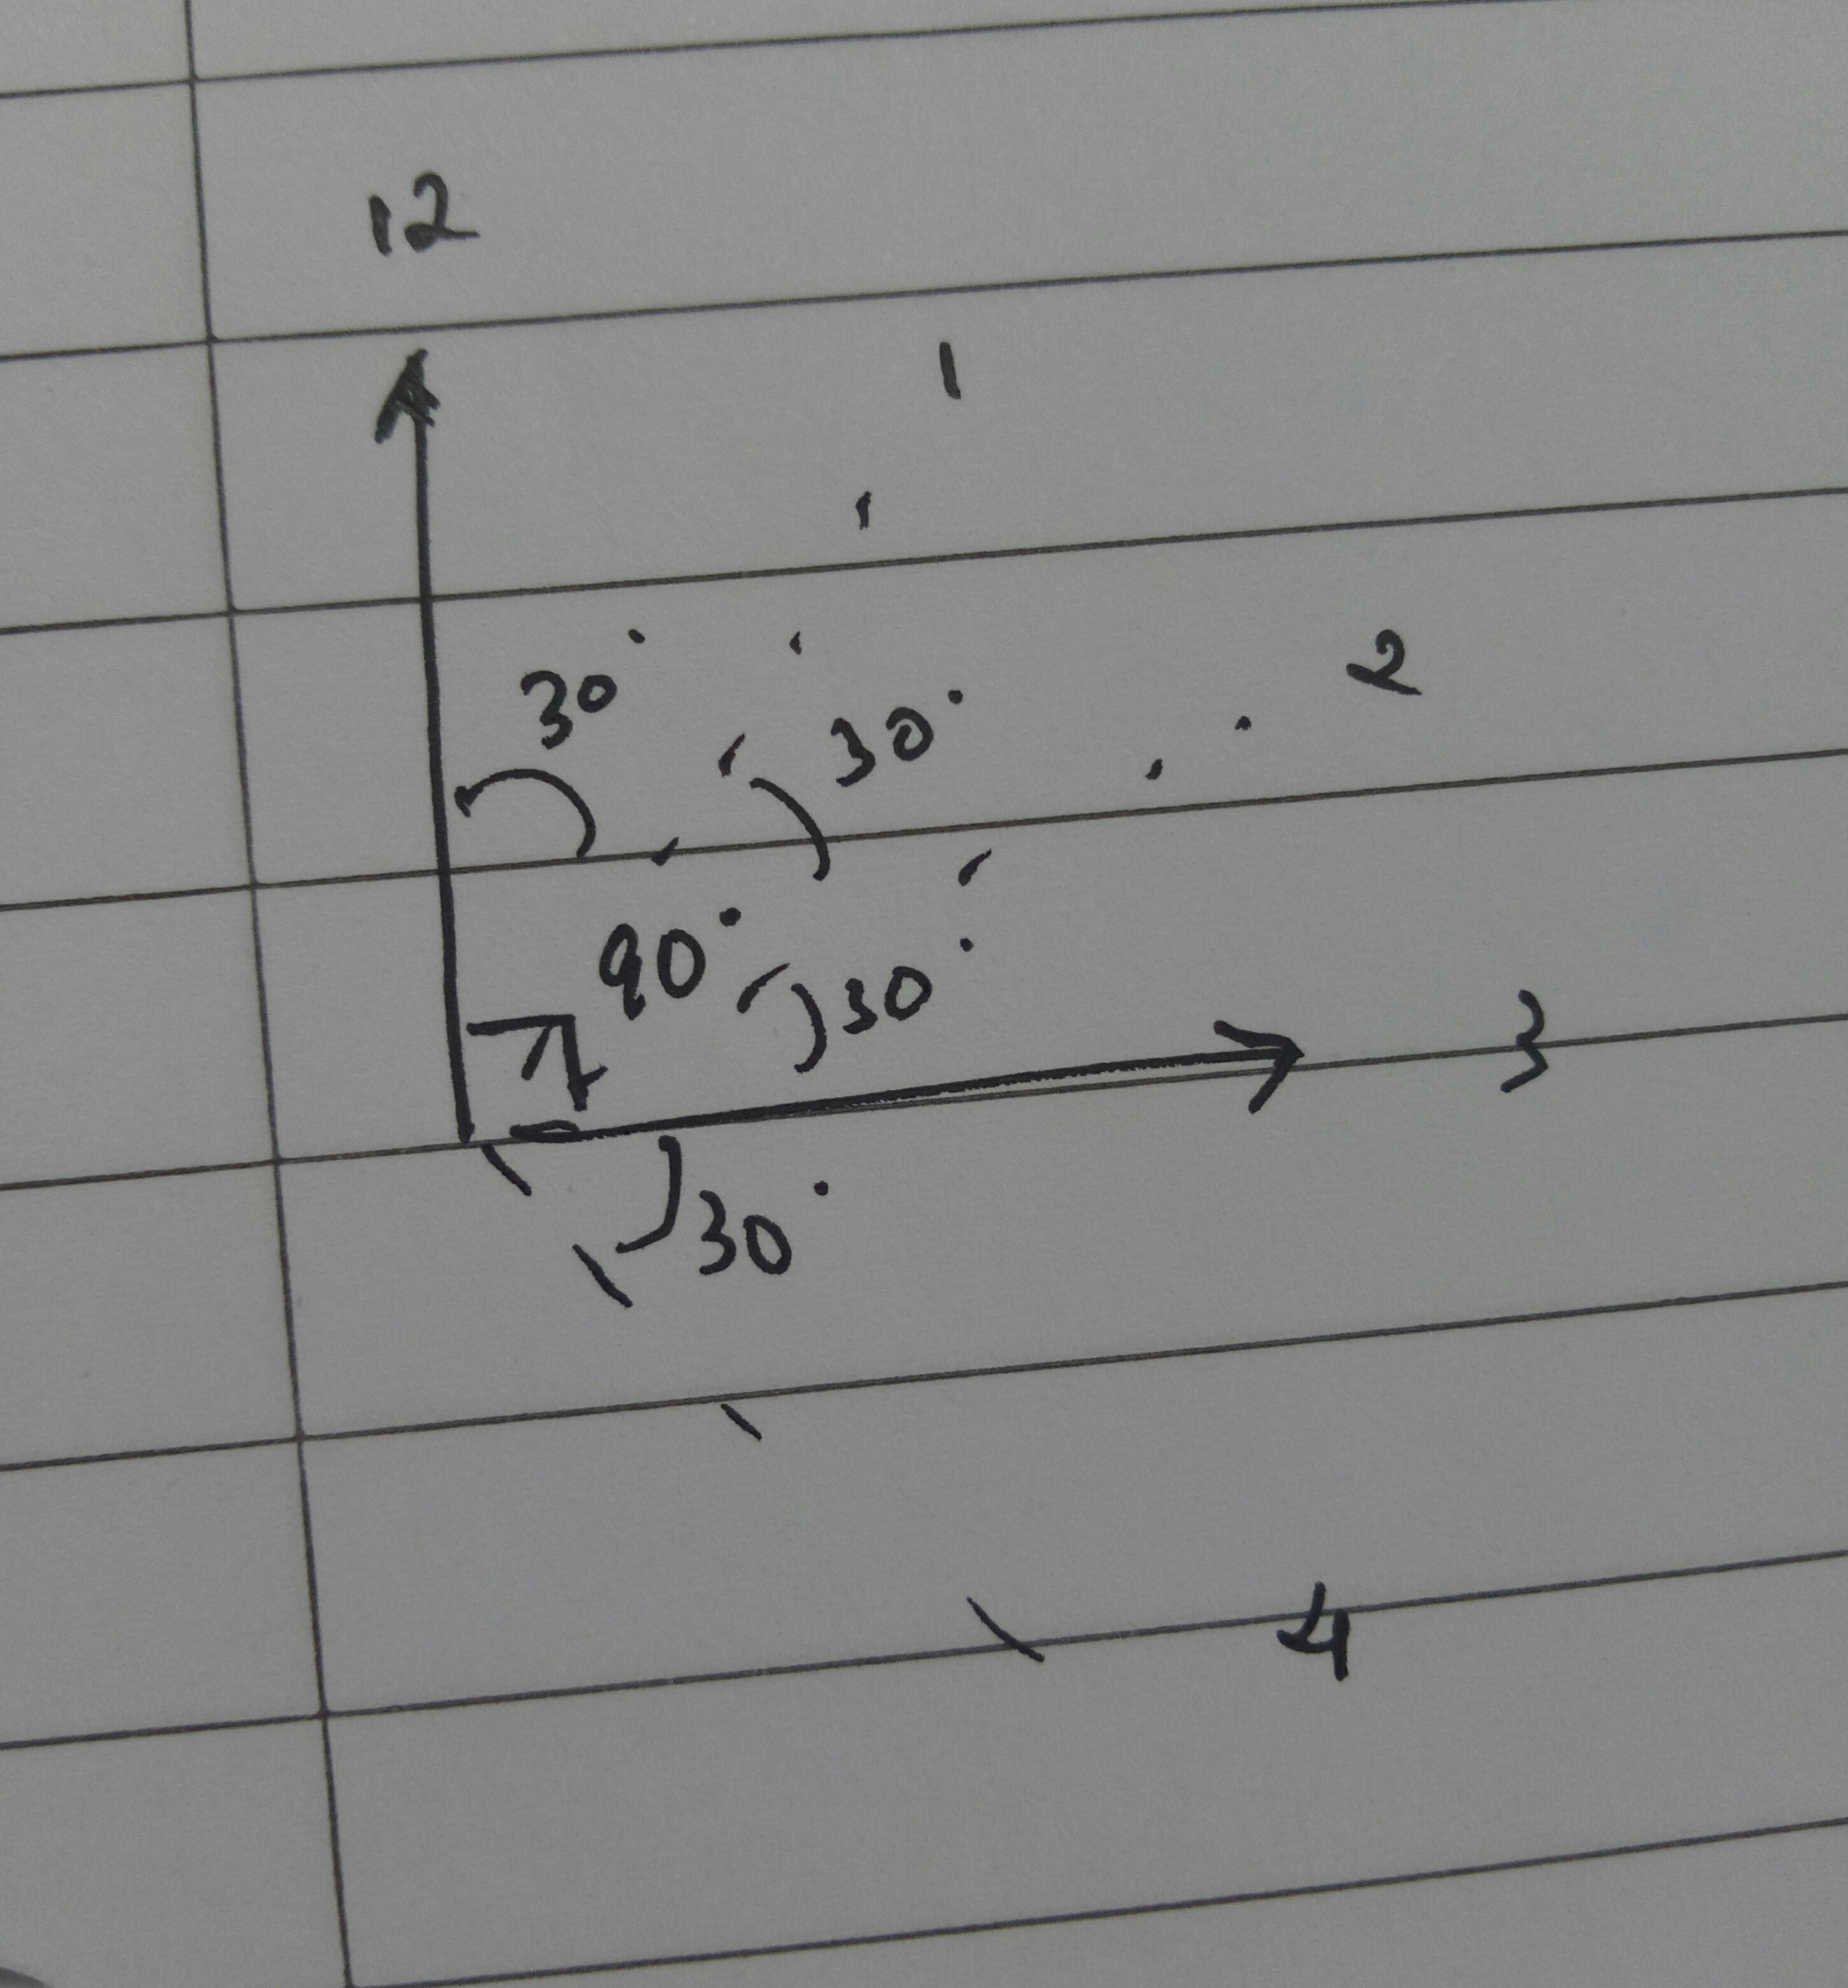 12
1
2
30°
30°
90°
30°
3
30°
4